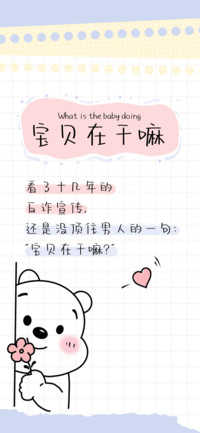 What is the baby doing
宝贝在干嘛
看了十几年的
反诈宣传,
还是没顶住男人的一句:
"宝贝在干嘛?"